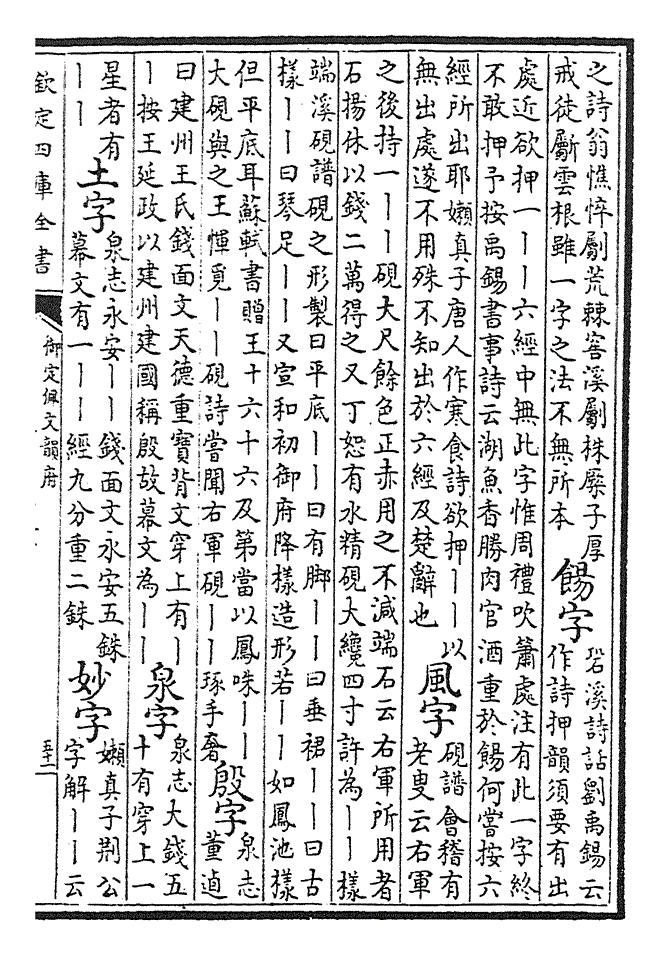 之詩翁憔悴劚荒棘窖溪劚株橜子厚
戒徒斸雲根雖一字之法不無所本
餳字
䂬溪詩話劉禹錫云
作詩押韻須要有出
處近欲押一丨丨六經中無此字惟周禮吹簫處注有此一字終
不敢押予按禹錫書事詩云湖魚香勝肉官酒重於餳何嘗按六
經所出耶嬾真子唐人作寒食詩欲押丨丨以
無出處遂不用殊不知出於六經及楚辭也
風字
硯譜會稽有
老叟云右軍
之後持一丨丨硯大尺餘色正赤用之不減端石云右軍所用者
石揚休以錢二萬得之又丁恕有水精硯大纔四寸許為丨丨樣
端溪硯譜硯之形製曰平底丨丨曰有脚丨丨曰垂裙丨丨曰古
樣丨丨曰琴足丨丨又宣和初御府降樣造形若丨丨如鳳池樣
但平底耳蘇軾書贈王十六十六及第當以鳳咮丨丨
大硯與之王惲覓丨丨硯詩嘗聞右軍硯丨丨琢手奢
殷字
泉志
董逌
曰建州王氏錢面文天德重寶背文穿上有丨
丨按王延政以建州建國稱殷故幕文為丨丨
泉字
泉志大錢五
十有穿上一
星者有
丨丨
土字
泉志永安丨丨錢面文永安五銖
幕文有一丨丨經九分重二銖
妙字
嬾真子荆公
字解丨丨云
欽定四庫全書
御定佩文韻府
五十二